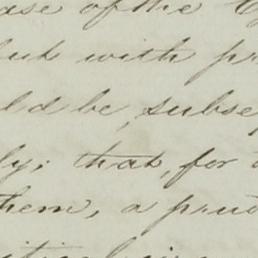 ase of the
but with pr
ld be, subse
ly; that, for
them, a prud